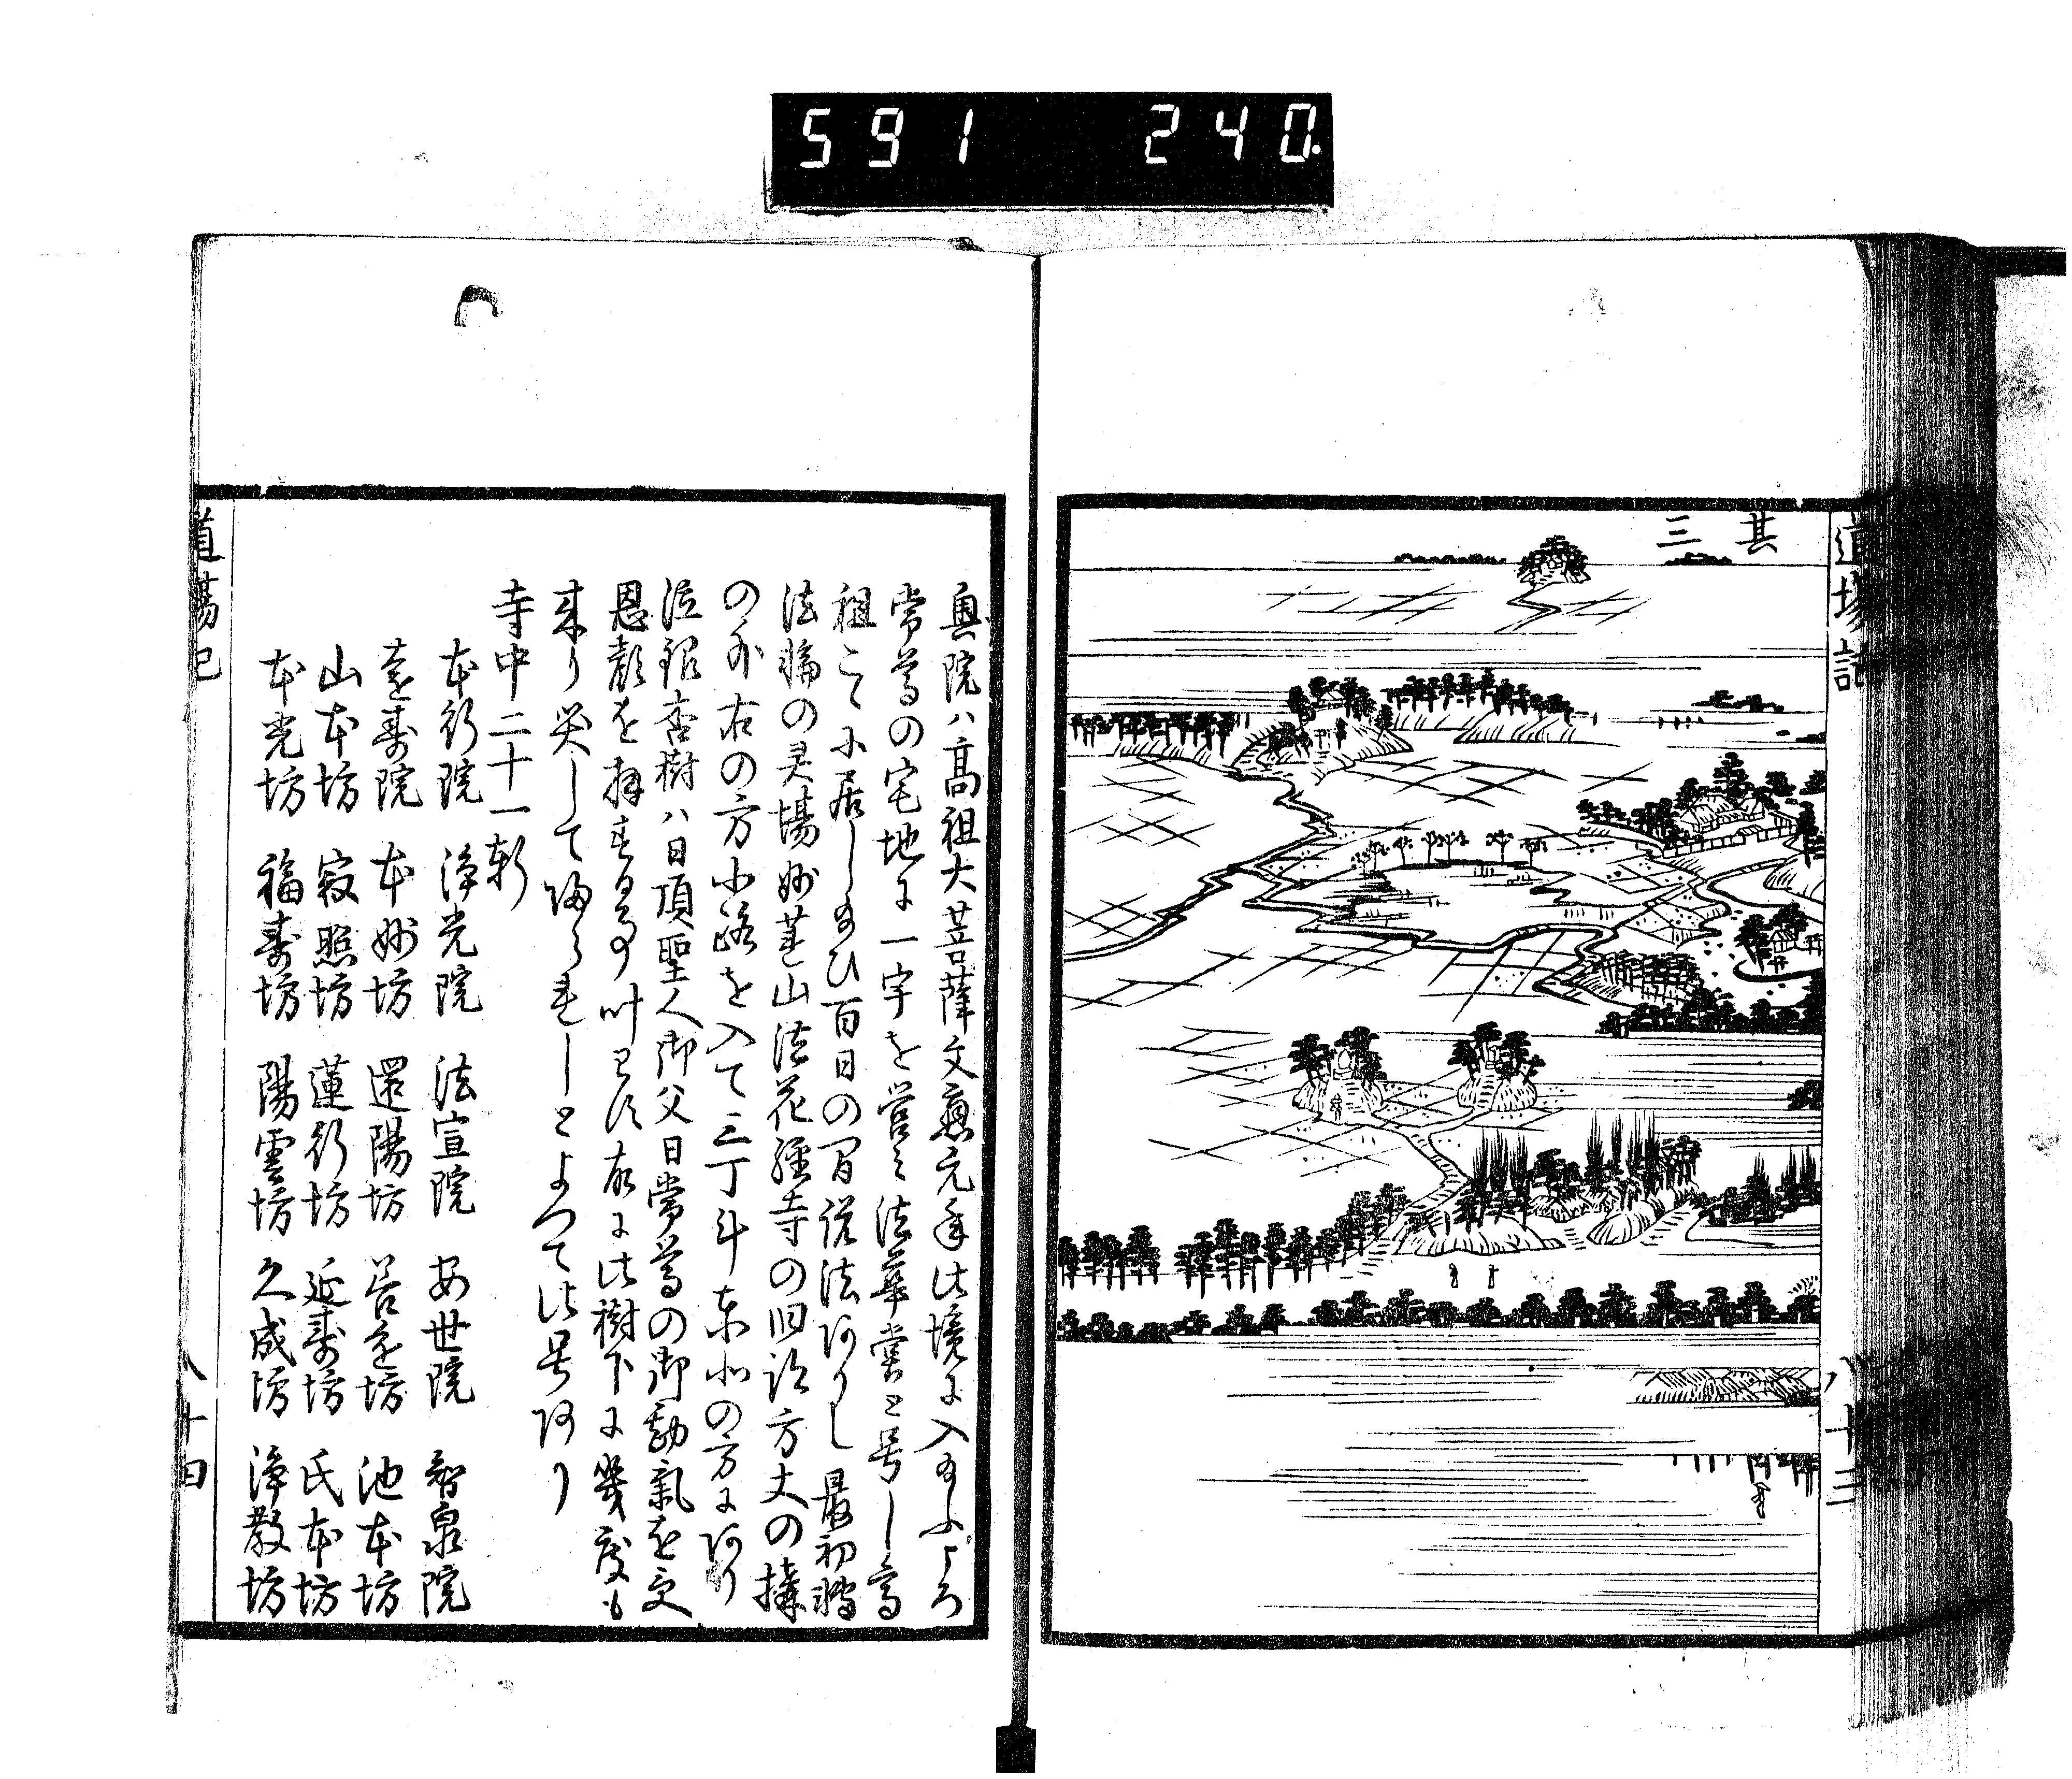 591 240
道場記
其三
八十三
奥院ハ高祖大菩薩文應元年此境に入給ふところ
常尊の宅地に一宇を営ミ法華堂と号し高
祖こゝに居し給ひ百日の間説法ありし最初轉
法輪の灵場妙蓮山法花經寺の旧跡方丈の構
の外右の方小路を入て三丁斗東北の方にあり
泣銀杏樹ハ日頂聖人御父日常尊の御勘氣を受
恩顔を拝する事叶わず故に此樹下に幾度も
来り哭して帰られしとよつて此号あり
寺中二十一軒
本行院 浄光院 法宣院 安世院 智泉院
遠寿院 本妙坊 還陽坊 善を坊 池本坊
山本坊 寂照坊 蓮行坊 延寿坊 氏本坊
本光坊 福寿坊 陽雲坊 久成坊 浄教坊
道場記
八十四